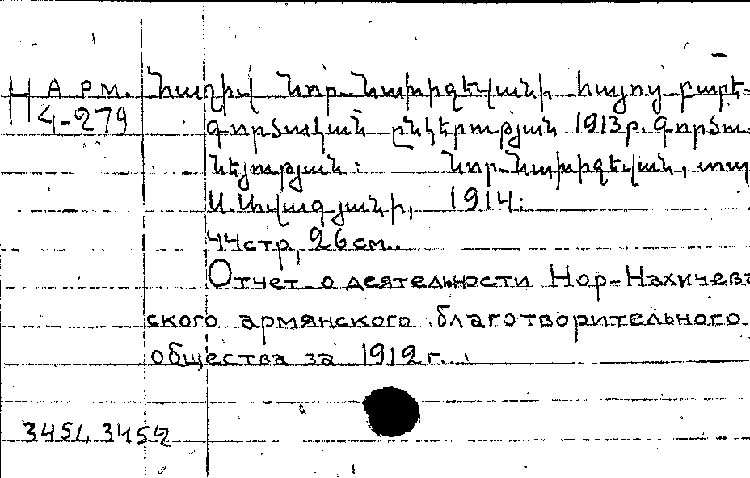 Н АРМ. Հաշիվ Նոր-Նախիջևանի հայոց բարե-
4-279 գործական ընկերության 1913թ. գործու
նեյության: Նոր-Նախիջևան, տպ
Ս. Ավագյանի, 1914:
44 стр, 26 см..
Отчет о деятельности Нор-Нахичева
нского армянского благотворительного
общества за 1912 г.
3451, 3452